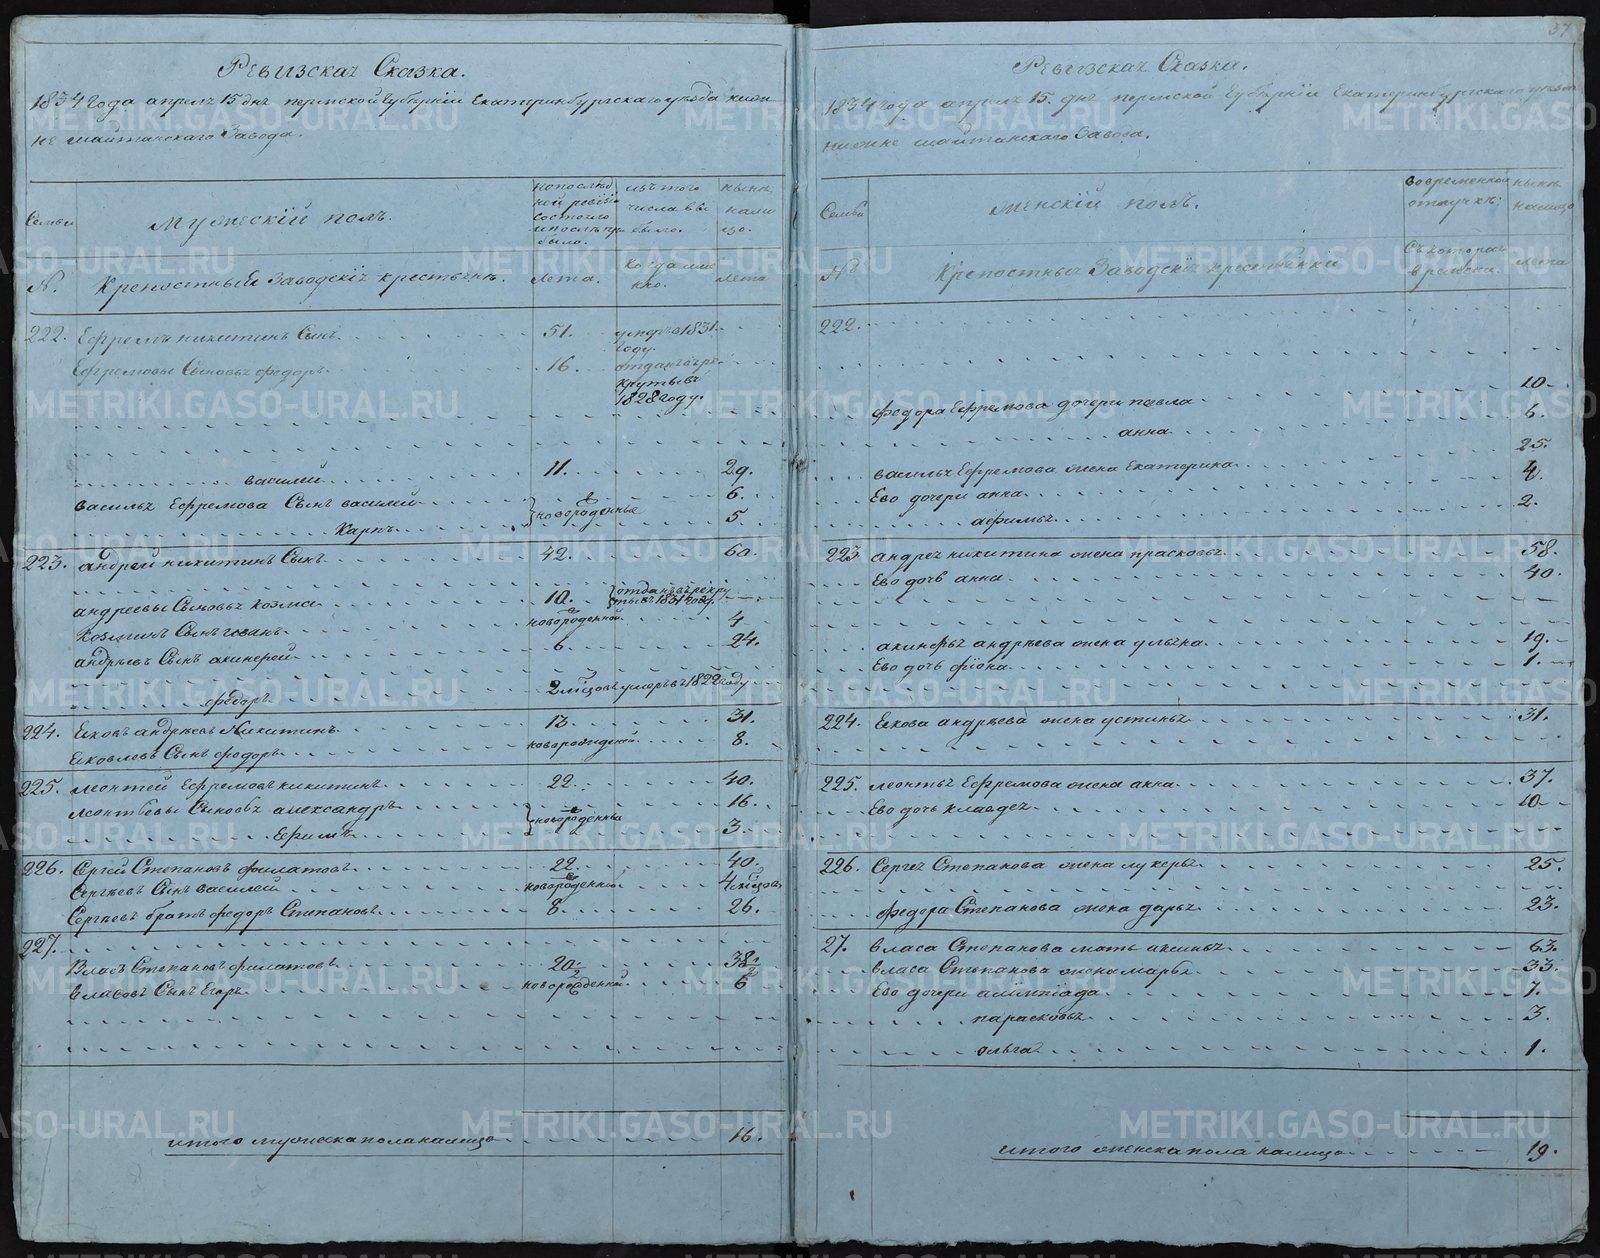 Ревизская Сказка.
1834 года апреля 15 дня пермской губернии Екатеринбургскаго уезда нижне
шайтанскаго Завода.
Семьи
мужеский полъ.
по последней ревизии состояло и после прибыло.
изъ того числа выбыло.
ныне налицо.
№.
Крепостныя Заводския крестьяне.
лета.
Когда именно.
лета
222. Ефремъ никитинъ Сынъ 51. умре в 1831 году.
Ефремовы Сыновья федоръ 16. отданъ в рекруты въ 1828 году.
василий 11. 29.
василья Ефремова Сынъ василей 6.
новорожденые
Карпъ 5.
223. андрей никитинъ Сынъ 42. 60.
андреевы Сыновья козма 10. отданъ в рекруты въ 1831 году.
козминъ Сынъ иванъ новорожденной 4
андреевъ Сынъ акинфей 6 24.
федоръ 2 месяцовъ умре въ 1822 году
224. Яковъ андреевъ Никитинъ 13. 31.
Яковлевъ Сынъ федоръ новорожденой 8.
225. леонтей Ефремовъ никитинъ 22. 40.
леонтьевы Сыновья александръ 16.
новорожденыя
Ефимъ 3.
226. Сергей Степановъ филатовъ 22 40.
Сергеевъ Сынъ василей новорожденной 4 месяцов
Сергеевъ братъ федоръ Степановъ 8. 26.
227.
Власъ Степановъ филатовъ 20 1/2 38 1/2
власовъ Сынъ Егоръ новорожденной 6
итого мужеска пола налицо 16.
37
Ревизская Сказка.
1834 года апреля 15. дня пермской губернии Екатеринбургскаго уезда
нижне шайтанскаго Завода.
Семьи
женский полъ.
во временной отлучке.
ныне налицо
№
Крепостныя Заводския крестьянки
Съ котораго времени.
лета
222.
федора Ефремова дочери павла 10
анна 6.
василья Ефремова жена Екатерина 25.
Ево дочери анна 4.
афимья 2.
223 андрея никитина жена прасковья 58.
Ево дочь анна 40.
акинфья андреева жена ульяна 19.
Ево дочь фiокла 1.
224. Якова андреева жена устинья 31.
225. леонтья Ефремова жена анна 37.
Ево дочь клавдея 10
226. Сергея Степанова жена лукерья 25.
федора Степанова жена дарья 23.
27. власа Степанова мать аксинья 63.
власа Степанова жена марья 33.
Ево дочери алимпиада 7.
парасковья 3.
ольга 1.
итого женска пола налицо 19.
METRIKI.GASO-URAL.RU